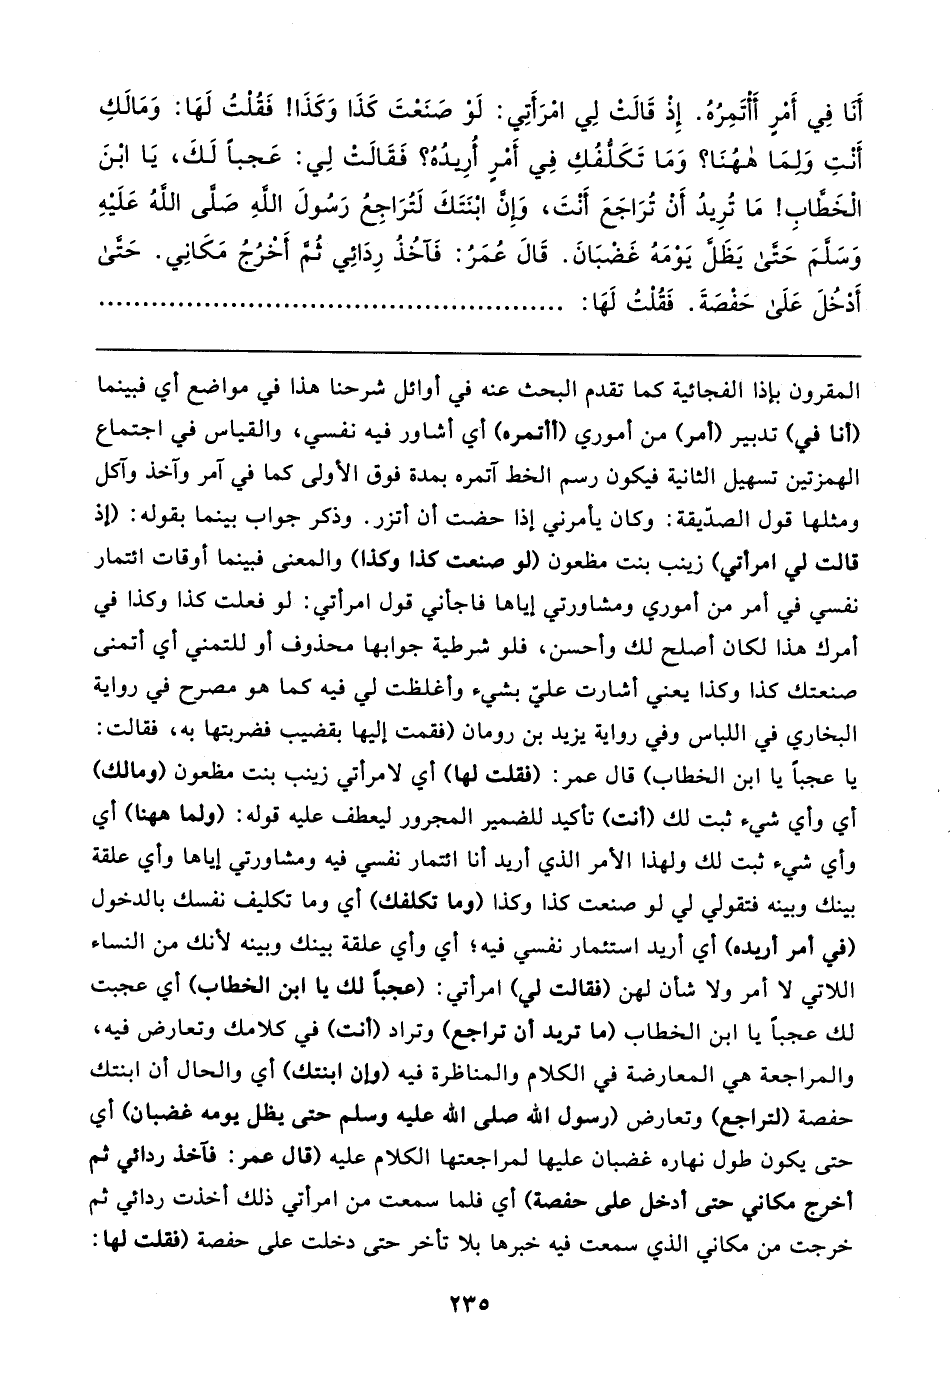 أَنَا فِي أَمْرٍ أَأْتَمِرُهُ. إِذْ قَالَتْ لِي امْرَأَتِي: لَوْ صَنَعْتَ كَذَا وَكَذَا! فَقُلْتُ لَهَا: وَمَالَكِ
أَنْتِ وَلِمَا هٰهُنَا؟ وَمَا تَكَلُّفُكِ فِي أَمْرٍ أُرِيدُهُ؟ فَقَالَتْ لِي: عَجَباً لَكَ، يَا ابْنَ
الْخَطَّابِ! مَا تُرِيدُ أَنْ تُرَاجَعَ أَنْتَ، وَإِنَّ ابْنَتَكَ لَتُرَاجِعُ رَسُولَ اللَّهِ صَلَّى اللَّهُ عَلَيْهِ
وَسَلَّمَ حَتَّىٰ يَظَلَّ يَوْمَهُ غَضْبَانَ. قَالَ عُمَرُ: فَآخُذُ رِدَائِي ثُمَّ أَخْرُجُ مَكَانِي. حَتَّىٰ
أَدْخُلَ عَلَىٰ حَفْصَةَ. فَقُلْتُ لَهَا: ................................................
المقرون بإذا الفجائية كما تقدم البحث عنه في أوائل شرحنا هذا في مواضع أي فبينما
(أنا في) تدبير (أمر) من أموري (أأتمره) أي أشاور فيه نفسي، والقياس في اجتماع
الهمزتين تسهيل الثانية فيكون رسم الخط آتمره بمدة فوق الأولى كما في آمر وآخذ وآكل
ومثلها قول الصدّيقة: وكان يأمرني إذا حضت أن أتزر. وذكر جواب بينما بقوله: (إذ
قالت لي امرأتي) زينب بنت مظعون (لو صنعت كذا وكذا) والمعنى فبينما أوقات ائتمار
نفسي في أمر من أموري ومشاورتي إياها فاجأني قول امرأتي: لو فعلت كذا وكذا في
أمرك هذا لكان أصلح لك وأحسن، فلو شرطية جوابها محذوف أو للتمني أي أتمنى
صنعتك كذا وكذا يعني أشارت عليّ بشيء وأغلظت لي فيه كما هو مصرح في رواية
البخاري في اللباس وفي رواية يزيد بن رومان (فقمت إليها بقضيب فضربتها به، فقالت:
يا عجباً يا ابن الخطاب) قال عمر: (فقلت لها) أي لامرأتي زينب بنت مظعون (ومالك)
أي وأي شيء ثبت لك (أنت) تأكيد للضمير المجرور ليعطف عليه قوله: (ولما ههنا) أي
وأي شيء ثبت لك ولهذا الأمر الذي أريد أنا ائتمار نفسي فيه ومشاورتي إياها وأي علقة
بينك وبينه فتقولي لي لو صنعت كذا وكذا (وما تكلفك) أي وما تكليف نفسك بالدخول
(في أمر أريده) أي أريد استئمار نفسي فيه؛ أي وأي علقة بينك وبينه لأنك من النساء
اللاتي لا أمر ولا شأن لهن (فقالت لي) امرأتي: (عجباً لك يا ابن الخطاب) أي عجبت
لك عجباً يا ابن الخطاب (ما تريد أن تراجع) وتراد (أنت) في كلامك وتعارض فيه،
والمراجعة هي المعارضة في الكلام والمناظرة فيه (وإن ابنتك) أي والحال أن ابنتك
حفصة (لتراجع) وتعارض (رسول الله صلى الله عليه وسلم حتى يظل يومه غضبان) أي
حتى يكون طول نهاره غضبان عليها لمراجعتها الكلام عليه (قال عمر: فآخذ ردائي ثم
أخرج مكاني حتى أدخل على حفصة) أي فلما سمعت من امرأتي ذلك أخذت ردائي ثم
خرجت من مكاني الذي سمعت فيه خبرها بلا تأخر حتى دخلت على حفصة (فقلت لها:
٢٣٥